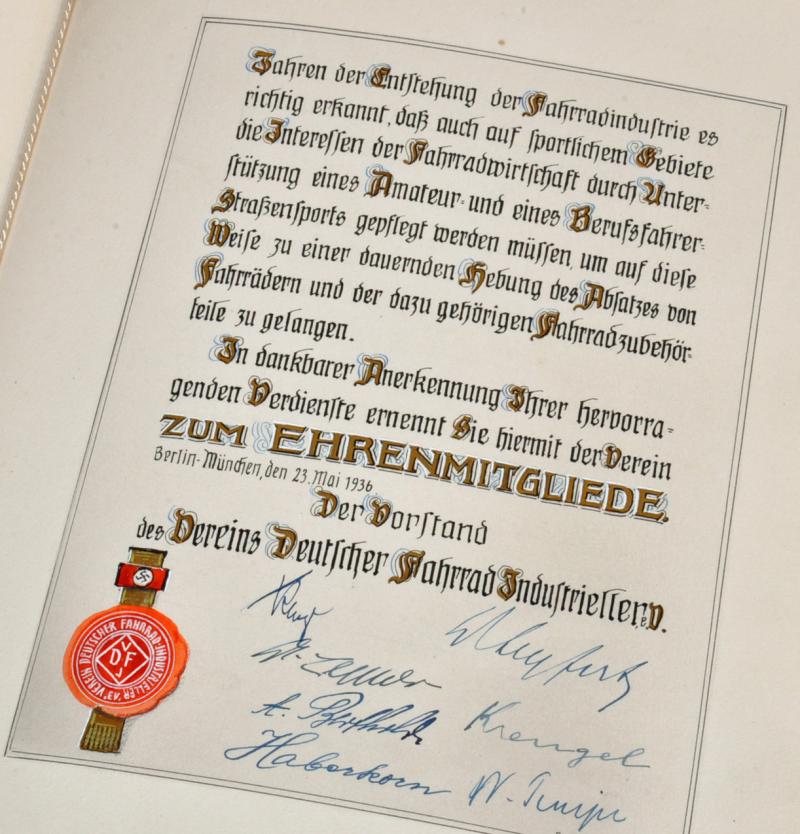 Jahren der Entstehung der Fahrradindustrie es
richtig erkannt, daß auch auf sportlichem Gebiete
die Interessen der Fahrradwirtschaft durch Unter-
stützung eines Amateur- und eines Berufsfahrer-
Straßensports gepflegt werden müssen, um auf diese
Weise zu einer dauernden Hebung des Absatzes von
Fahrrädern und der dazu gehörigen Fahrradzubehör-
teile zu gelangen.
In dankbarer Anerkennung Ihrer hervorra-
genden Verdienste ernennt Sie hiermit der Verein
ZUM EHRENMITGLIEDE.
Berlin-München, den 23. Mai 1936
Der Vorstand
des Vereins Deutscher Fahrrad Industrieller e.V.
VEREIN DEUTSCHER FAHRRAD-INDUSTRIELLER e.V.
VDFJ
Krengel
Haberkorn